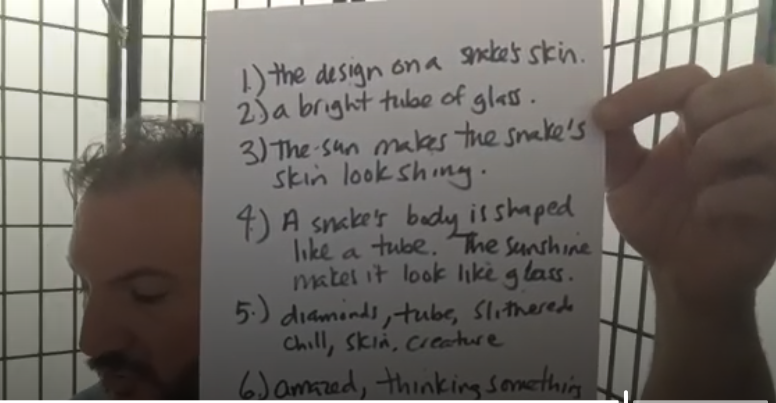 1.) the design on a snake's skin.
2.) a bright tube of glass.
3.) The sun makes the snake's
skin look shing.
4.) A snake's body is shaped
like a tube. The sunshine
makes it look like glass.
5.) diamonds, tube, slithered
chill, skin, creature
6.) amazed, thinking something